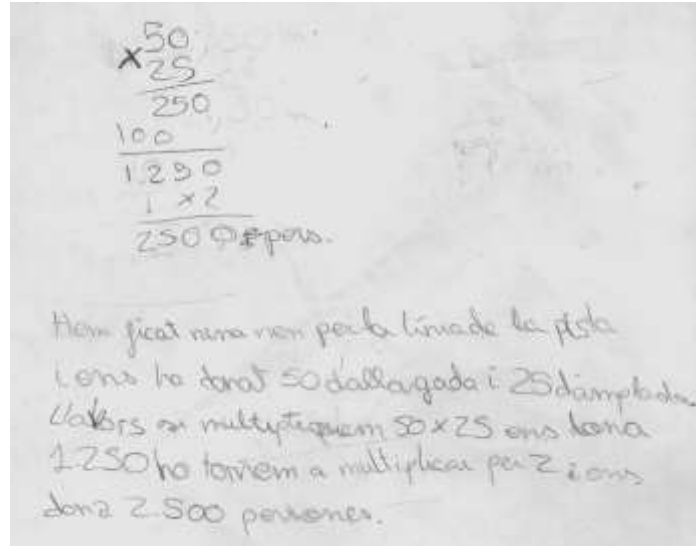 50
x 25
250
100
1250
1 x2
2500 pers.
Hem ficat nena nen per la línia de la pista
i ens ha donat 50 dallargada i 25 damplada.
Llavors si multipliquem 50x25 ens dona
1250 ho tornem a multiplicar per 2 i ens
dona 2500 persones.